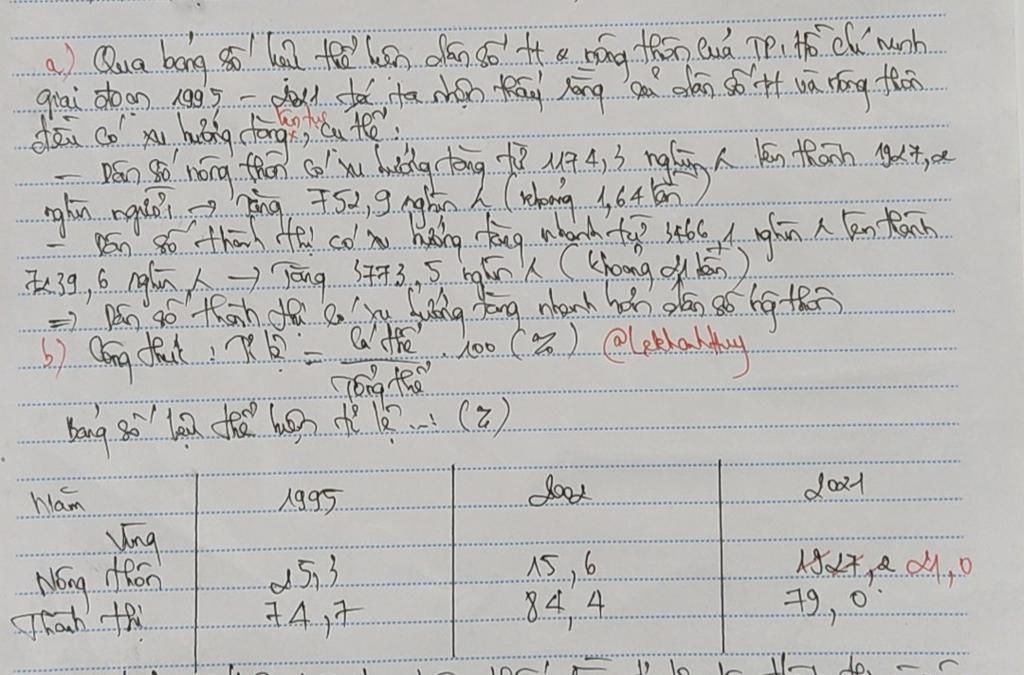 a) Qua bảng số liệu thể hiện dân số tt & nông thôn của TP. Hồ Chí Minh
giai đoạn 1995 - 2021 ta nhận thấy rằng dân số tt và nông thôn
đều có xu hướng tăng liên tục, cụ thể:
- Dân số nông thôn có xu hướng tăng từ 1174,3 nghìn lên thành 1927,2
nghìn người → Tăng 752,9 nghìn (khoảng 1,64 lần)
- Dân số thành thị có xu hướng tăng nhanh từ 3466,1 nghìn lên thành
7239,6 nghìn → Tăng 3773,5 nghìn (khoảng 2,1 lần)
=> Dân số thành thị có xu hướng tăng nhanh hơn dân số ng thôn
b) Công thức: Tỉ lệ = Cá thể / Tổng thể . 100 (%) @Lekhanhthuy
Bảng số liệu thể hiện tỉ lệ ...: (%)
Năm 1995 2021
Vùng
Nông thôn 25,3 15,6 1927,2 21,0
Thành thị 74,7 84,4 79,0